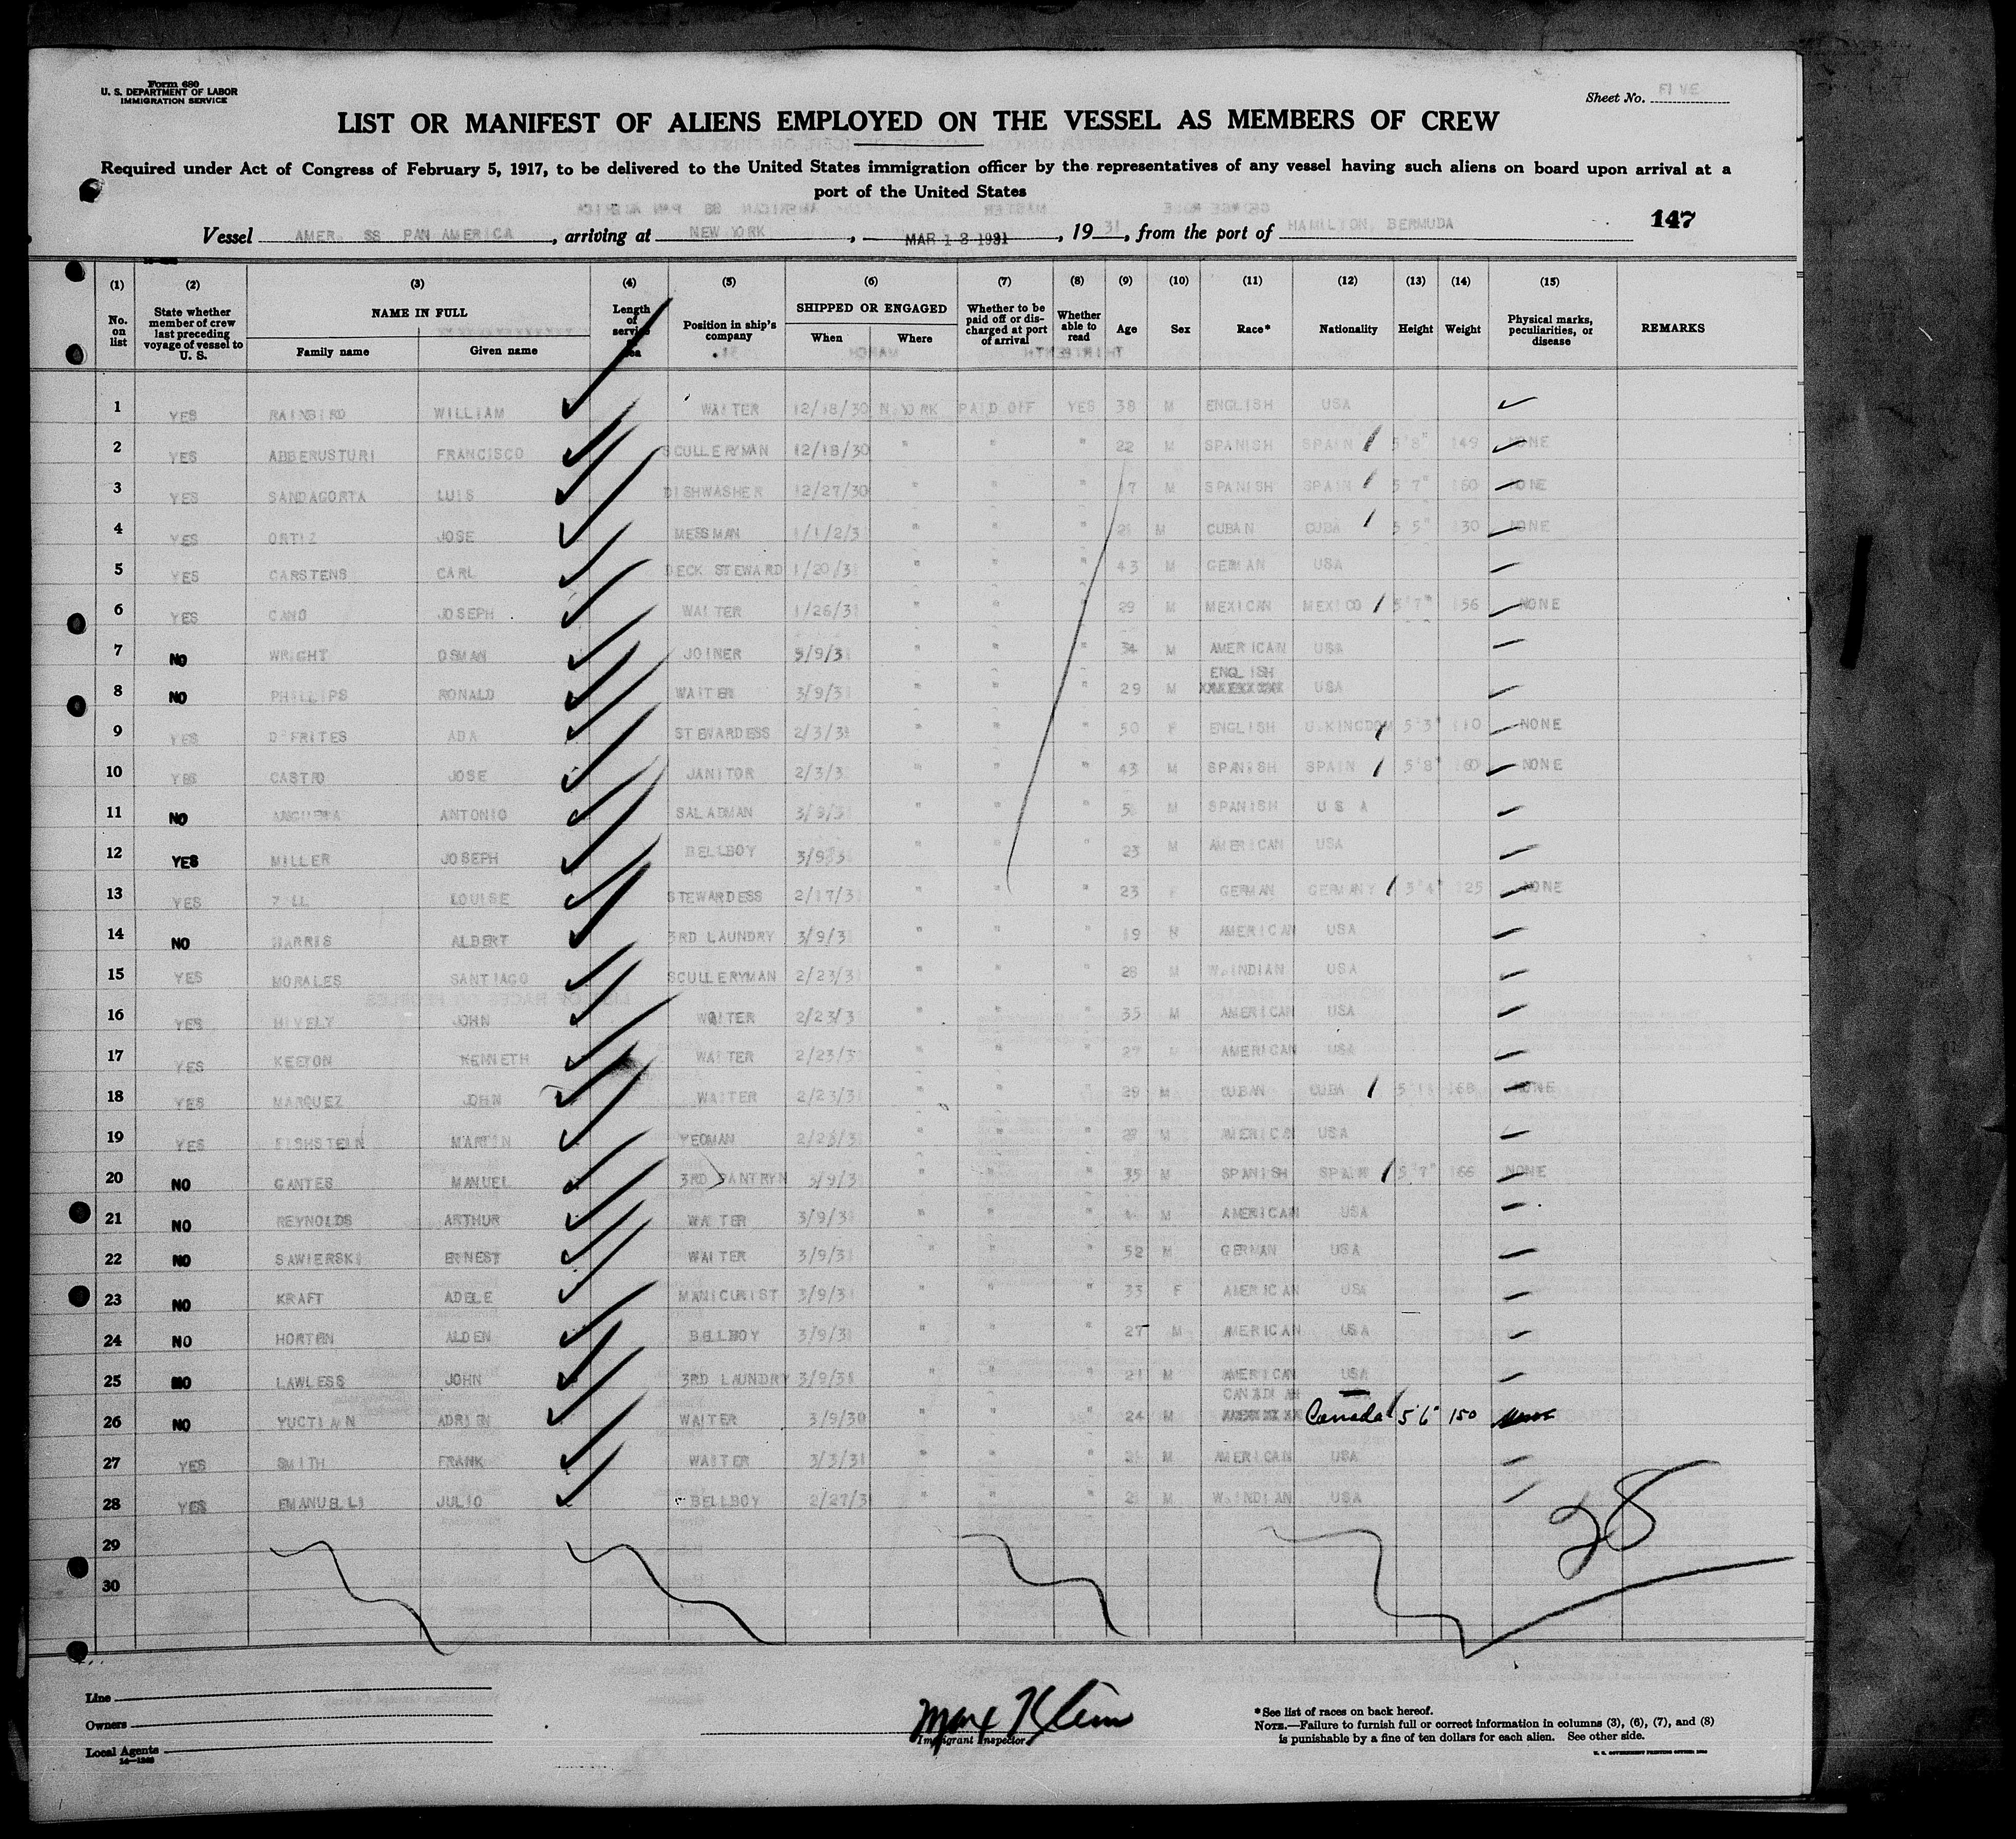 Form 680
U. S. DEPARTMENT OF LABOR
IMMIGRATION SERVICE
Sheet No. FIVE
LIST OR MANIFEST OF ALIENS EMPLOYED ON THE VESSEL AS MEMBERS OF CREW
Required under Act of Congress of February 5, 1917, to be delivered to the United States immigration officer by the representatives of any vessel having such aliens on board upon arrival at a
port of the United States
147
Vessel AMER. SS PAN AMERICA, arriving at NEW YORK, MAR 13 1931, 1931, from the port of HAMILTON, BERMUDA
(1) (2) (3) (4) (5) (6) (7) (8) (9) (10) (11) (12) (13) (14) (15)
No. on list State whether member of crew last preceding voyage of vessel to U. S. NAME IN FULL Family name Given name Length of service Position in ship's company SHIPPED OR ENGAGED When Where Whether to be paid off or discharged at port of arrival Whether able to read Age Sex Race* Nationality Height Weight Physical marks, peculiarities, or disease REMARKS
1 YES RAINBIRD WILLIAM WAITER 12/18/30 N.YORK PAID OFF YES 38 M ENGLISH USA
2 YES ABBERUSTURI FRANCISCO SCULLERYMAN 12/18/30 " " " 22 M SPANISH SPAIN 5'8" 149 NONE
3 YES SANDAGORTA LUIS DISHWASHER 12/27/30 " " " 17 M SPANISH SPAIN 5'7" 160 NONE
4 YES ORTIZ JOSE MESSMAN " " " M CUBAN CUBA 5'5" 130 NONE
5 YES CARSTENS CARL DECK STEWARD 1/20/31 " " " 43 M GERMAN USA
6 YES CANO JOSEPH WAITER 1/26/31 " " " 29 M MEXICAN MEXICO 5'7" 156 NONE
7 NO WRIGHT OSMAN JOINER 3/9/31 " " " 34 M AMERICAN USA
8 NO PHILLIPS RONALD WAITER 3/9/31 " " " 29 M ENGLISH USA
9 YES DEFRITES ADA STEWARDESS 2/3/31 " " " 50 F ENGLISH U.KINGDOM 5'3" 110 NONE
10 YES CASTRO JOSE JANITOR 2/3/3 " " " 43 M SPANISH SPAIN 5'8" 160 NONE
11 NO ANTONIO SALADMAN 3/9/31 " " " M SPANISH U S A
12 YES MILLER JOSEPH BELLBOY 3/9/31 " " " 23 M AMERICAN USA
13 YES LOUISE STEWARDESS 2/17/31 " " " 23 F GERMAN GERMANY 5'4" 125 NONE
14 NO HARRIS ALBERT 3RD LAUNDRY 3/9/31 " " " 19 M AMERICAN USA
15 YES MORALES SANTIAGO SCULLERYMAN 2/23/31 " " " 28 M W.INDIAN USA
16 YES HIVELY JOHN WAITER 2/23/3 " " " 35 M AMERICAN USA
17 YES KEETON KENNETH WAITER 2/23/3 " " " 27 M AMERICAN USA
18 YES MARQUEZ JOHN WAITER 2/23/31 " " " 29 M CUBAN CUBA 168 NONE
19 YES FISHSTEIN MARTIN YEOMAN " " " M AMERICAN USA
20 NO GANTES MANUEL 3RD PANTRYN 3/9/3 " " " 35 M SPANISH SPAIN 5'7" 166 NONE
21 NO REYNOLDS ARTHUR WAITER 3/9/31 " " " M AMERICAN USA
22 NO SAWIERSKI ERNEST WAITER 3/9/31 " " " 52 M GERMAN USA
23 NO KRAFT ADELE MANICURIST 3/9/31 " " " 33 F AMERICAN USA
24 NO HORTEN ALDEN BELLBOY 3/9/31 " " " 27 M AMERICAN USA
25 NO LAWLESS JOHN 3RD LAUNDRY 3/9/31 " " " 21 M AMERICAN USA
26 NO YUCTIAN ADRIEN WAITER 3/9/30 " " " 24 M CANADIAN USA Canada 5'6" 150 None
27 YES SMITH FRANK WAITER 3/3/31 " " " M AMERICAN USA
28 YES EMANUELLI JULIO BELLBOY 2/27/31 " " " 21 M W.INDIAN USA
29
30
28
Line
Owners
Local Agents
Max Klein
Immigrant Inspector
*See list of races on back hereof.
NOTE.—Failure to furnish full or correct information in columns (3), (6), (7), and (8)
is punishable by a fine of ten dollars for each alien. See other side.